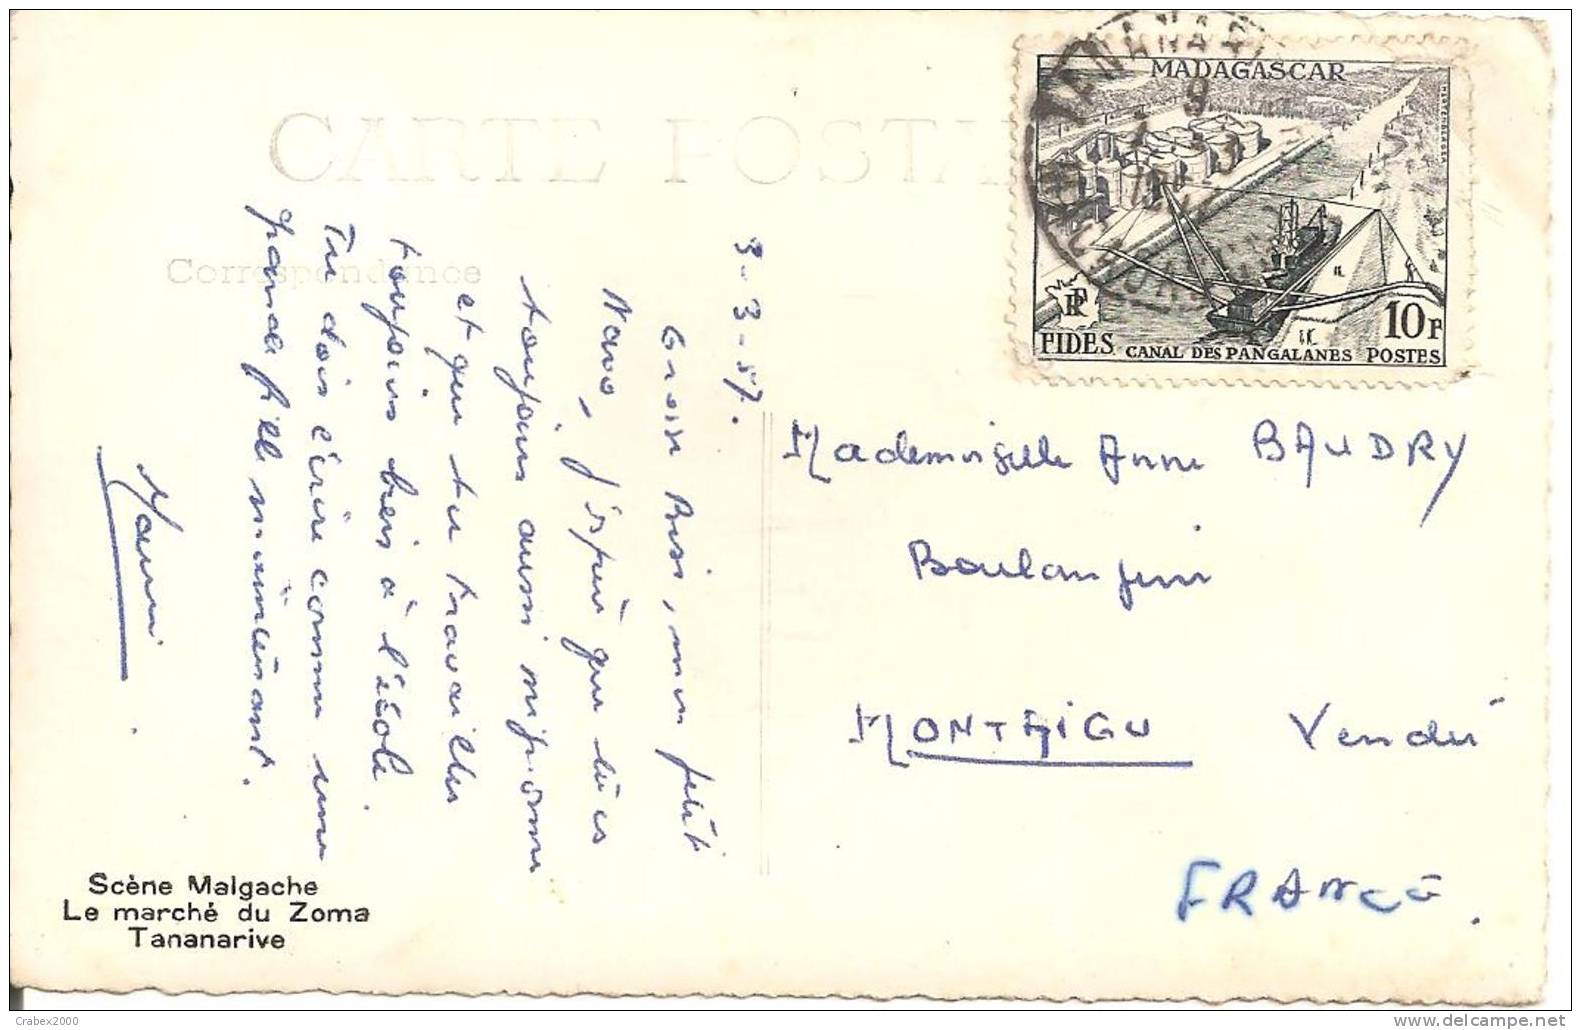 CARTE POSTA
Correspondance
3-3-57.
Gros Bisi, mon petit
Nano, j'espère que tu es
toujours aussi mignonne
et que tu travailles
toujours bien à l'école.
Tu dois écrire comme une
grande fille maintenant.
MADAGASCAR
RF
10F
FIDES CANAL DES PANGALANES POSTES
Mademoiselle Anne BAUDRY
MONTAIGU Vendée
FRANCE.
Scène Malgache
Le marché du Zoma
Tananarive
Crabex2000
delcampe.net